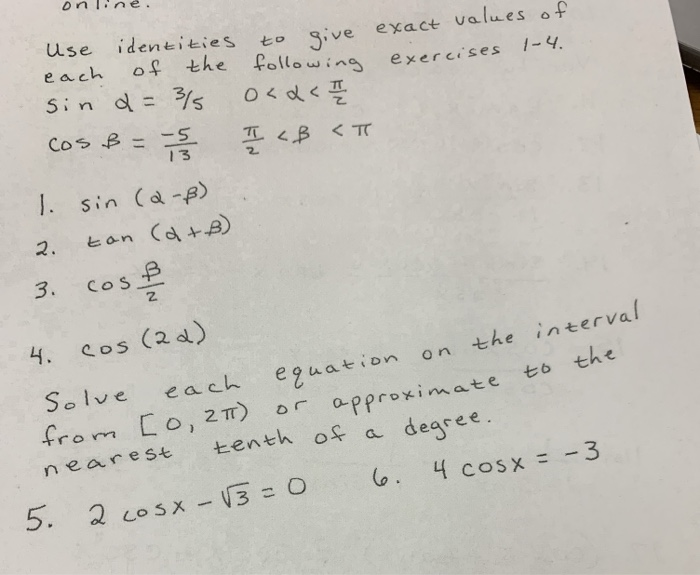 online.
Use identities to give exact values of
each of the following exercises 1-4.
sin α = 3/5 0 < α < π/2
cos β = -5/13 π/2 < β < π
1. sin (α - β)
2. tan (α + β)
3. cos β/2
4. cos (2α)
Solve each equation on the interval
from [0, 2π) or approximate to the
nearest tenth of a degree.
5. 2 cosx - √3 = 0 6. 4 cosx = -3